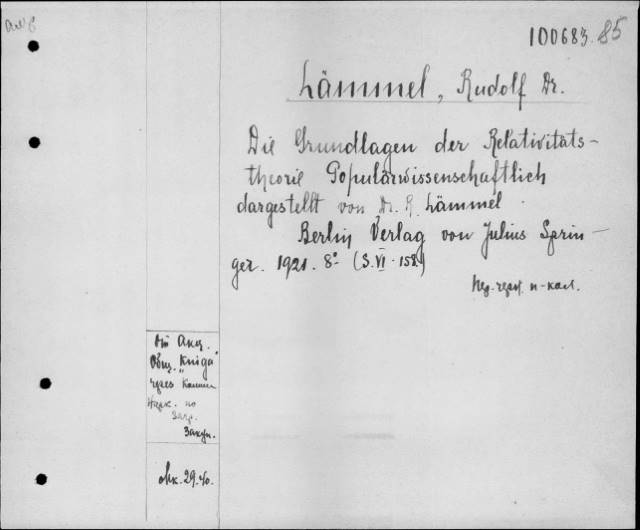 100683. 85
Lämmel, Rudolf Dr.
Die Grundlagen der Relativitäts-
theorie Populärwissenschaftlich
dargestellt von Dr. R. Lämmel.
Berlin Verlag von Julius Sprin-
ger. 1921. 8° (S. VI. 158)
От Акц.
Общ. "Книга"
через
по
загр.
Закуп.